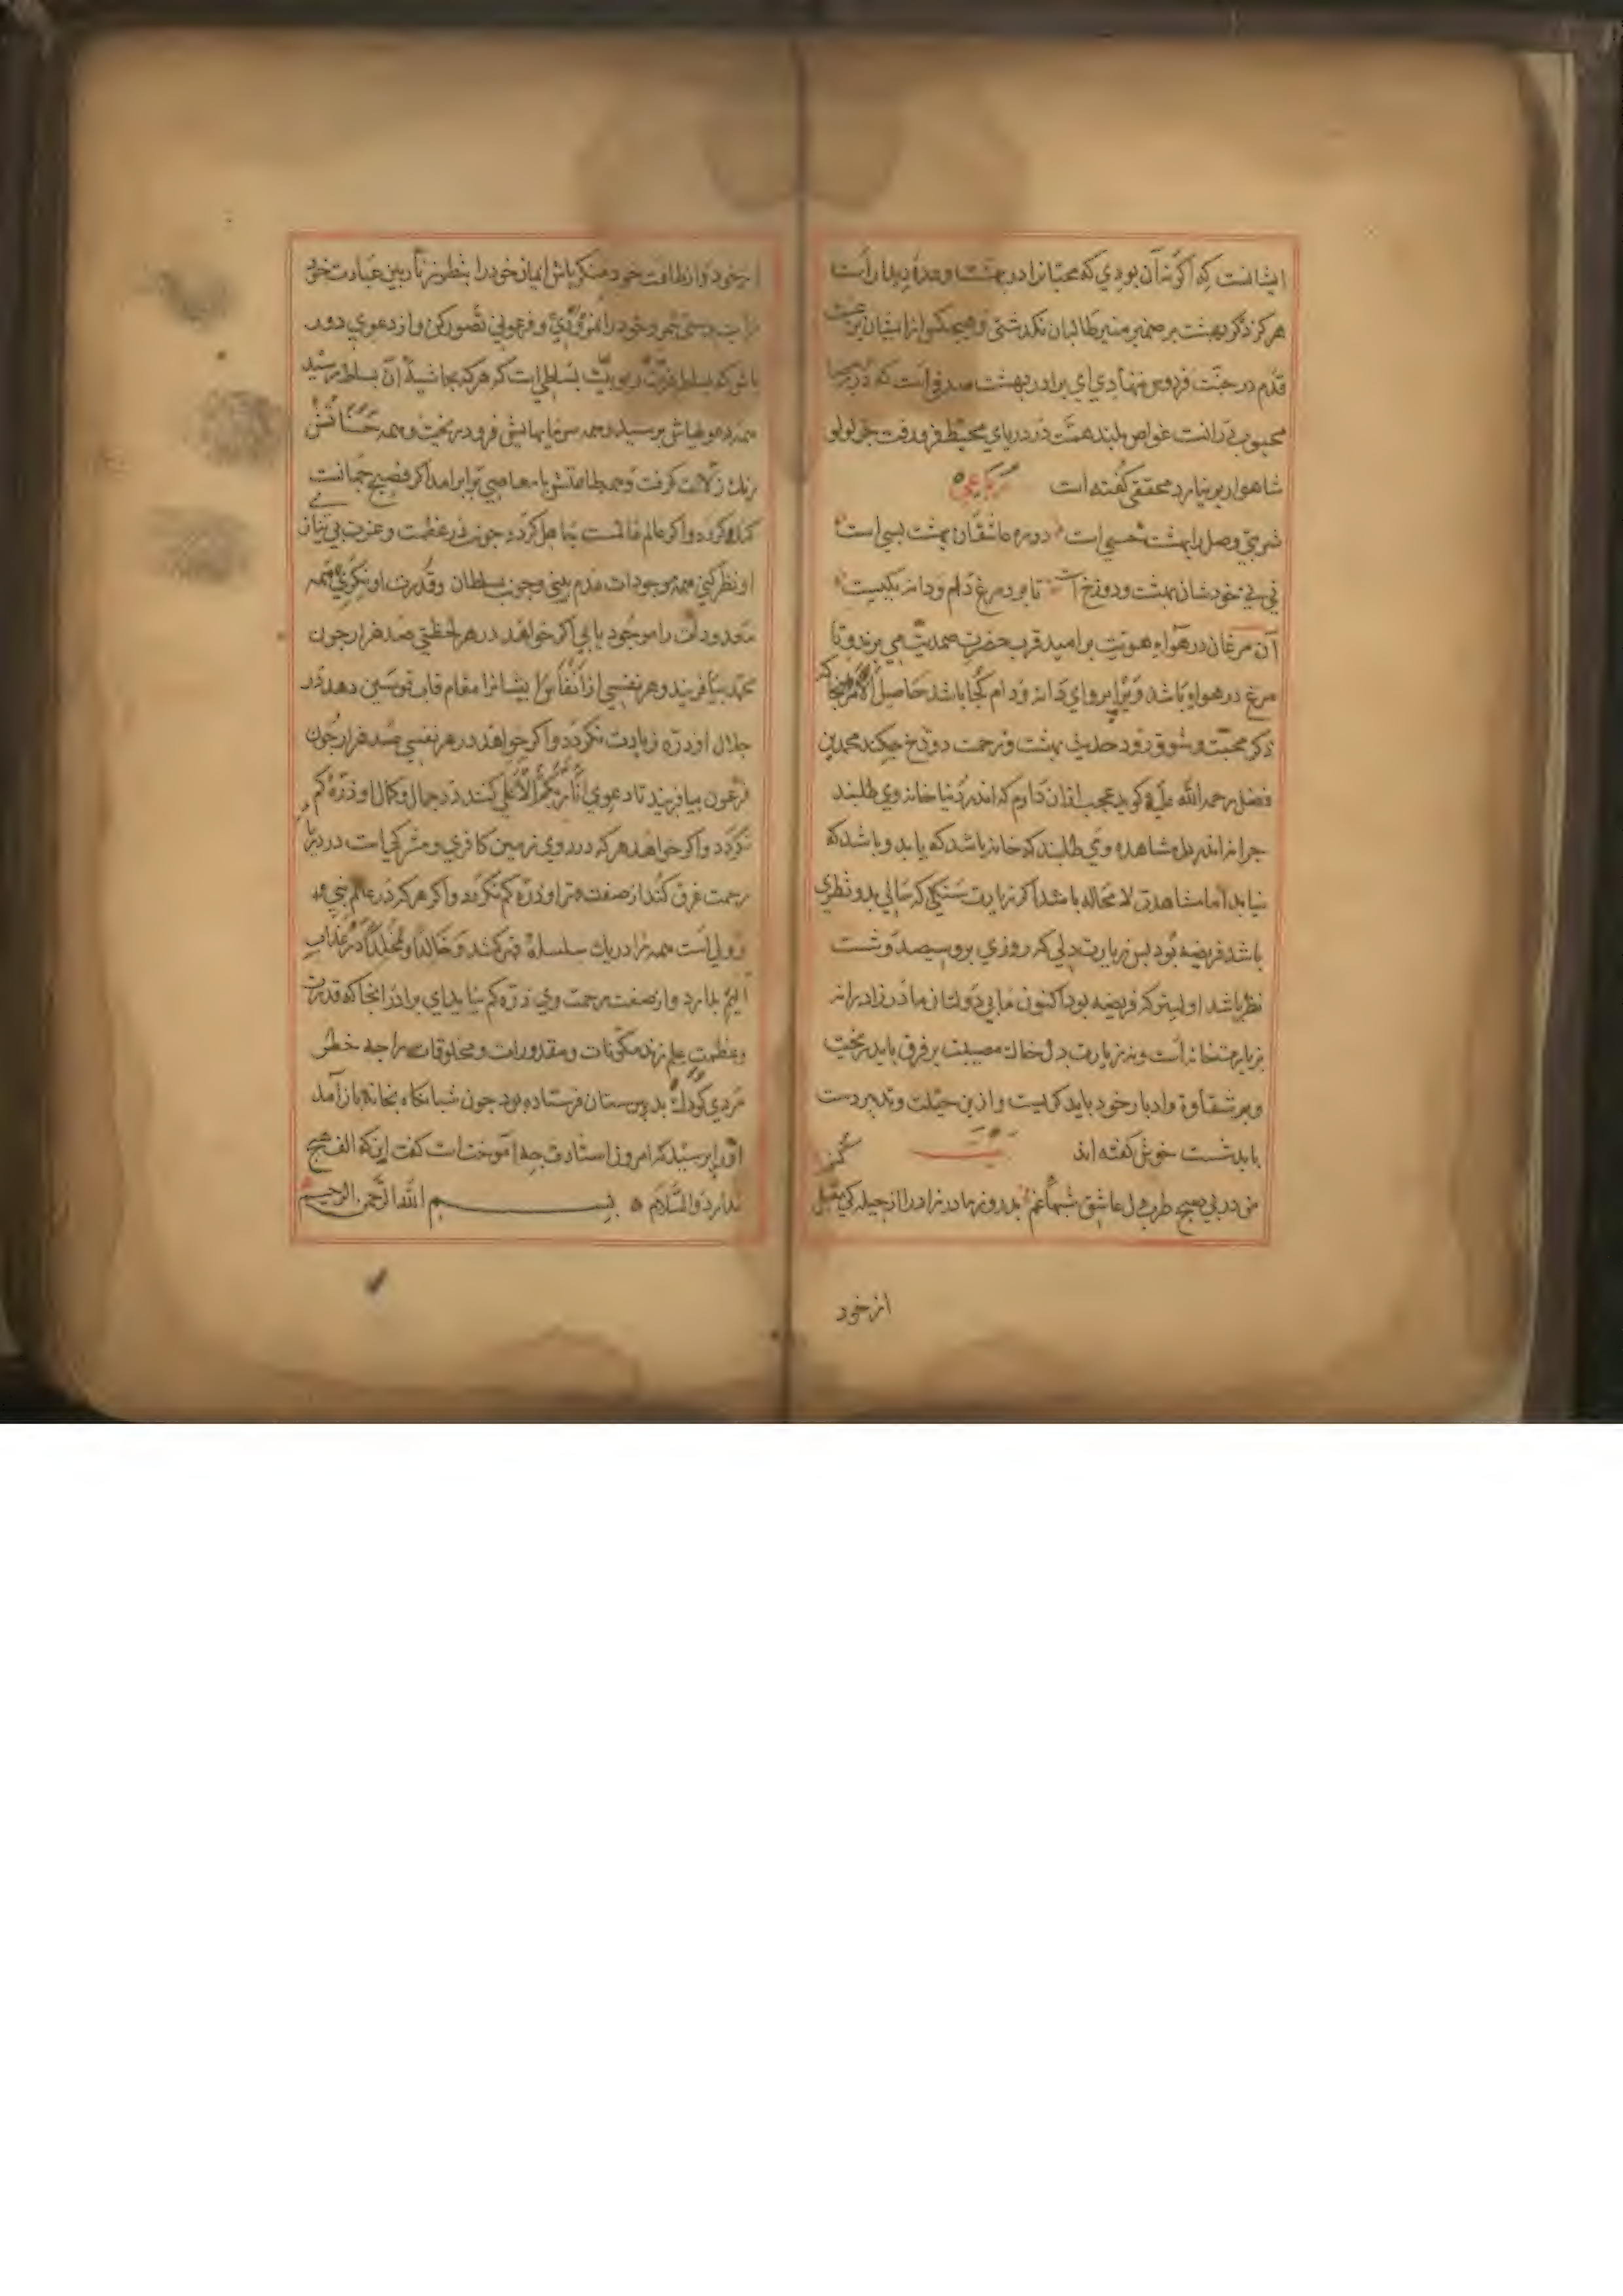 ایشانست که اگر نه آن بودی که محبانرا در بهشت وعدهٔ دیدار است
هرگز ذکر بهشت بر ضمیر منیر طالبان نگذشتی و هیچکس از ایشان
قدم در جنت فردوس ننهادی ای برادر بهشت صدفی است که در
محبوبی دانست غواص بلند همت در دریای محیط فرو رفت جز لولو
شاهوار بر نیارد محققی گفته است رباعی
شربتی وصل را بهشت خسی است دوره عاشقان بهشت بسی است
نی نی خودشان بهشت و دوزخ تا بود مرغ دام و دانه یکیست
آن مرغان در هواء هویت بر امید قرب حضرت صمدیت می پرند و تا
مرغ در هوا باشد ویرا پروای دانه و دام کجا باشد حاصل الامر
ذکر محبت و شوق رود حدیث بهشت و زحمت دوزخ چکند محمد بن
فضل رحمه الله علیه گوید عجب ازان دارم که اندر دنیا خانه وی طلبند
چرا نه اندر دل مشاهده وی طلبند که خانه باشد که یابد و باشد که
نیابد اما مشاهدت لا محاله باشد اگر زیارت سنگی که سالی بدو نظری
باشد فریضه بود بس زیارت دلی که روزی برو سیصد و شست
نظر باشد اولیتر که فریضه بود اکنون ما بی دولتان مادرزاد را نه
زیارت خانه است و نه زیارت دل خاک مصیبت بر فرق باید ریخت
و بر شقاوة و ادبار خود باید گریست و ازین حیلت و تدبیر دست
باید شست خوش گفته اند بیت
من در پی صبح طرب دل عاشق شبهاء غم بدروز مادر زاد را از حیله کی مقبل کند
از خود
از خود و از طاعت خود منکر باش ایمان خودرا بنظر زنار بین عبادت خود
بت پرستی شمر و خود را نمرودی و فرعونی تصور کن و از دعوی دور
باش که بساط عزت ربوبیت بساطی است که هر که بحاشیهٔ آن بساط رسید
همه دعویهاش برسید و همه سرمایهایش فرو ریخت و همه حسناتش
رنگ زلات گرفت و همه طاعتش با معاصی برابر آمد اگر فصیح جهانست
گنگ گردد و اگر عالم عالمست جاهل گردد چون در عظمت و عزت بی نیازی
او نظر کنی همه موجودات عدم بینی و چون بسلطان و قدرت او نگری همه
معدودات را موجود یابی اگر خواهد در هر لحظتی صد هزار چون
محمد بیافریند و هر نفسی از انفاس ایشانرا مقام قاب قوسین دهد در
جلال او ذره زیادت نگردد و اگر خواهد در هر نفسی صد هزار چون
فرعون بیافریند تا دعوی انا ربکم الاعلی کنند در جمال و کمال او ذره کم
نگردد و اگر خواهد هر که در روی زمین کافری و مشرکی است در دریاء
رحمت غرق کند از صفت قهر او ذره کم نگردد و اگر هر که در عالم نبی
و ولی است همه را در یک سلسلهٔ قهر کشد و خالدا و مخلدا در عذاب
الیم بدارد و از صفت رحمت وی ذره کم نیاید ای برادر انجا که قدرت
و عظمت علم زند مکونات و مقدورات و مخلوقات را چه خطر
مردی کودک بدبیرستان فرستاده بود چون شبانگاه بخانه باز آمد
اورا پرسید که امروز استادت چه آموخت است گفت اینکه الف هیچ
ندارد والسلام بسم الله الرحمن الرحیم